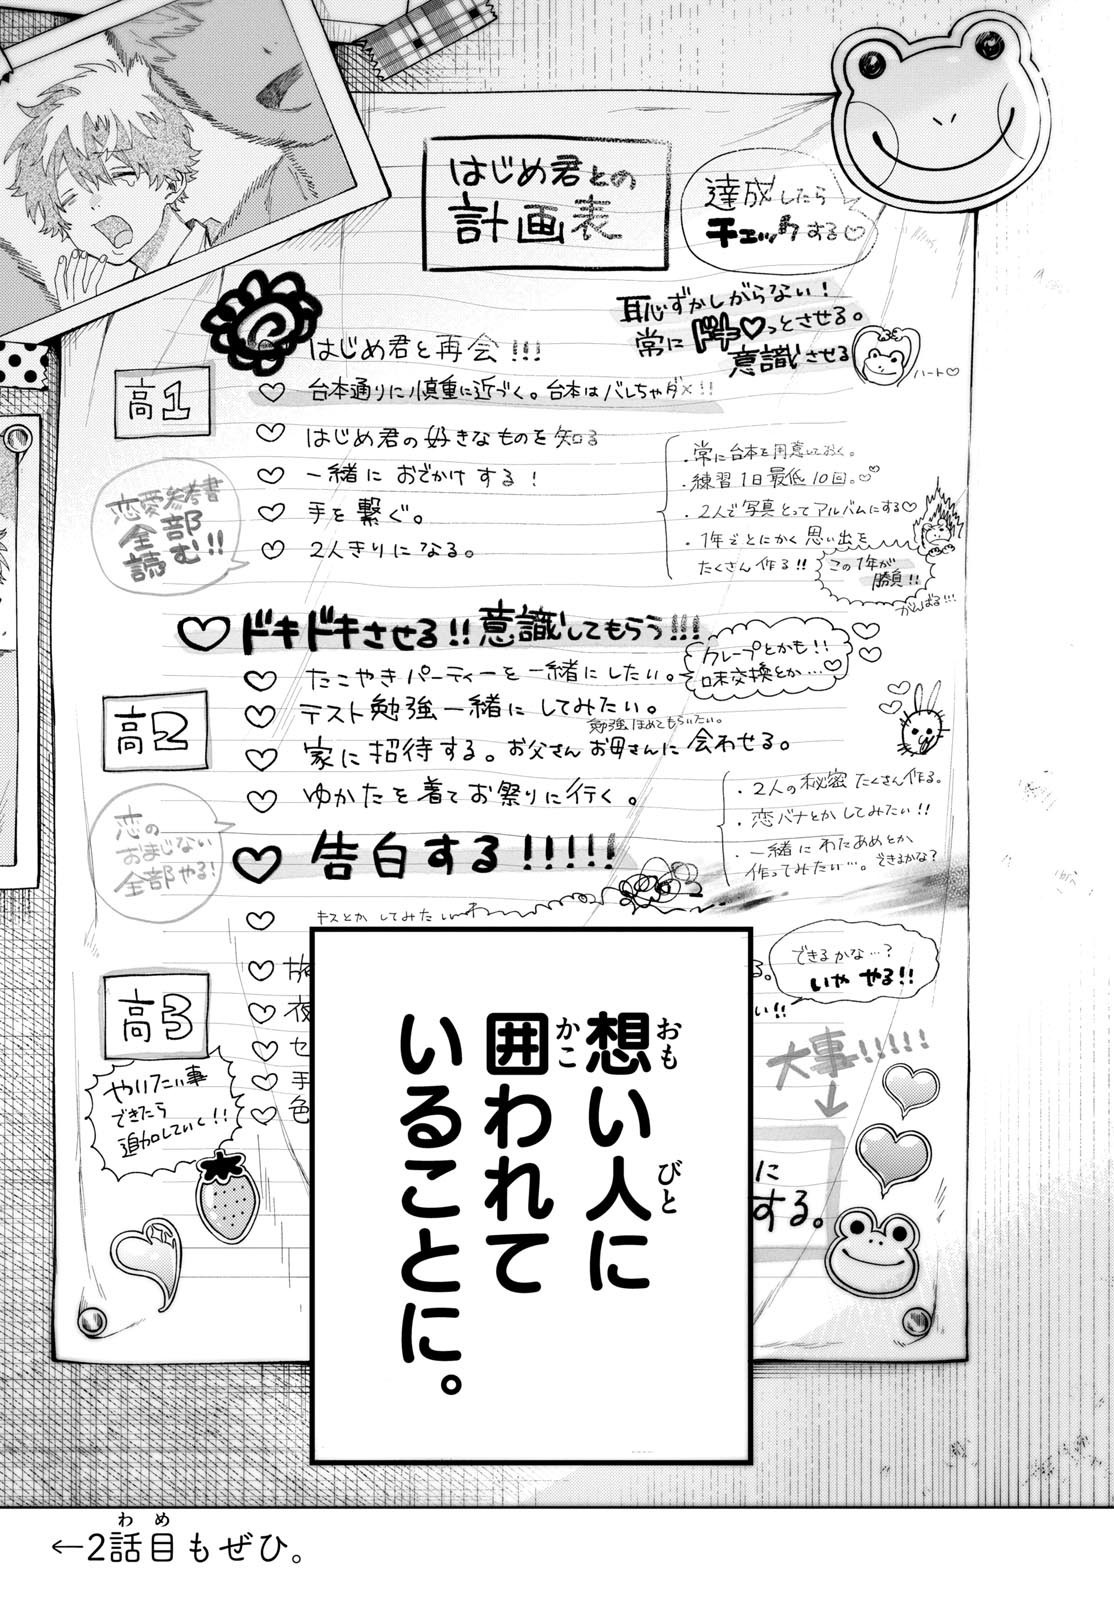 はじめ君との
計画表
達成したら
チェックする♡
恥ずかしがらない！
常にドキ♡っとさせる。
意識させる
ハート♡
はじめ君と再会!!!
高1
♡ 台本通りに慎重に近づく。台本はバレちゃダメ!!
♡ はじめ君の好きなものを知る
♡ 一緒におでかけする！
♡ 手を繋ぐ。
♡ 2人きりになる。
恋愛参考書
全部
読む!!
・常に台本を用意しておく。
・練習1日最低10回。♡♡
・2人で写真とってアルバムにする♡
・1年ごとにとにかく思い出を
たくさん作る!!
この1年が
勝負!!
がんばる!!!
♡ドキドキさせる!!意識してもらう!!!
高2
♡ たこやきパーティーを一緒にしたい。
クレープとかも!!
味交換とか…♡
♡ テスト勉強一緒にしてみたい。
勉強ほめてもらいたい。
♡ 家に招待する。お父さんお母さんに会わせる。
♡ ゆかたを着てお祭りに行く。
♡ 告白する!!!!!
恋の
おまじない
全部やる!
・2人の秘密たくさん作る。
・恋バナとかしてみたい!!
・一緒にわたあめとか
作ってみたい…。できるかな?
♡ キスとかしてみたい
高3
♡
♡ 夜
♡ セ
♡ 手
♡ 色
る。
い!!
できるかな…?
いや やる!!
大事!!!!!
↓
に
する。
やりたい事
できたら
追加していく!!
想い人に
おも びと
囲われて
かこ
いることに。
←2話目もぜひ。
わ め